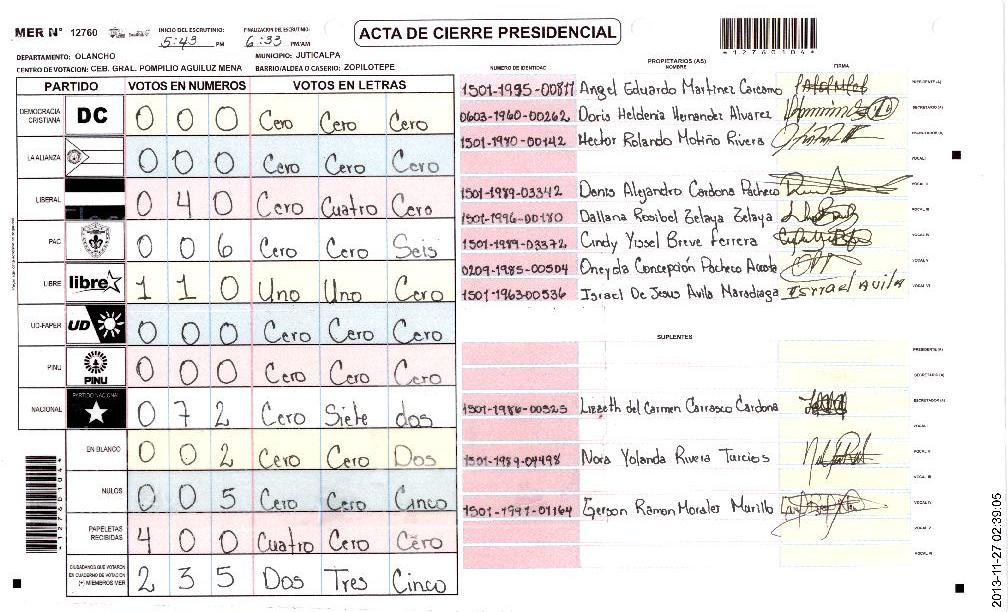 MER N° 12760 INICIO DEL ESCRUTINIO: 5:43 PM FINALIZACION DEL ESCRUTINIO: 6:33 PM/AM
ACTA DE CIERRE PRESIDENCIAL
*12760104*
DEPARTAMENTO: OLANCHO MUNICIPIO: JUTICALPA
CENTRO DE VOTACION: CEB. GRAL. POMPILIO AGUILUZ MENA BARRIO/ALDEA O CASERIO: ZOPILOTEPE
PARTIDO VOTOS EN NUMEROS VOTOS EN LETRAS
DEMOCRACIA CRISTIANA DC 0 0 0 Cero Cero Cero
LA ALIANZA 0 0 0 Cero Cero Cero
LIBERAL 0 4 0 Cero Cuatro Cero
PAC 0 0 6 Cero Cero Seis
LIBRE libre 1 1 0 Uno Uno Cero
UD-FAPER UD 0 0 0 Cero Cero Cero
PINU PINU 0 0 0 Cero Cero Cero
NACIONAL PARTIDO NACIONAL 0 7 2 Cero Siete dos
EN BLANCO 0 0 2 Cero Cero Dos
NULOS 0 0 5 Cero Cero Cinco
PAPELETAS RECIBIDAS 4 0 0 Cuatro Cero Cero
CIUDADANOS QUE VOTARON EN CUADERNO DE VOTACION (+) MIEMBROS MER 2 3 5 Dos Tres Cinco
*12760104*
PROPIETARIOS (AS)
NUMERO DE IDENTIDAD NOMBRE FIRMA
1501-1995-00811 Angel Eduardo Martinez Carcamo PRESIDENTE (A)
0603-1960-00262 Doris Heldenia Hernandez Alvarez SECRETARIO (A)
1501-1980-00142 Hector Rolando Motiño Rivera ESCRUTADOR (A)
VOCAL I
1501-1989-03342 Denis Alejandro Cardona Pacheco VOCAL II
1501-1996-00180 Dallana Rosibel Zelaya Zelaya VOCAL III
1501-1989-03372 Cindy Yissel Breve Ferrera VOCAL IV
0209-1985-00504 Oneyda Concepción Pacheco Acosta VOCAL V
1501-1963-00536 Israel De Jesus Avila Maradiaga Isrrael Avila VOCAL VI
SUPLENTES
PRESIDENTE (A)
SECRETARIO (A)
1501-1986-00525 Lizzeth del Carmen Carrasco Cardona ESCRUTADOR (A)
VOCAL I
1501-1989-04498 Nora Yolanda Rivera Turcios VOCAL II
VOCAL III
1501-1991-01164 Gerson Ramon Morales Murillo VOCAL IV
VOCAL V
VOCAL VI
2013-11-27 02:39:05